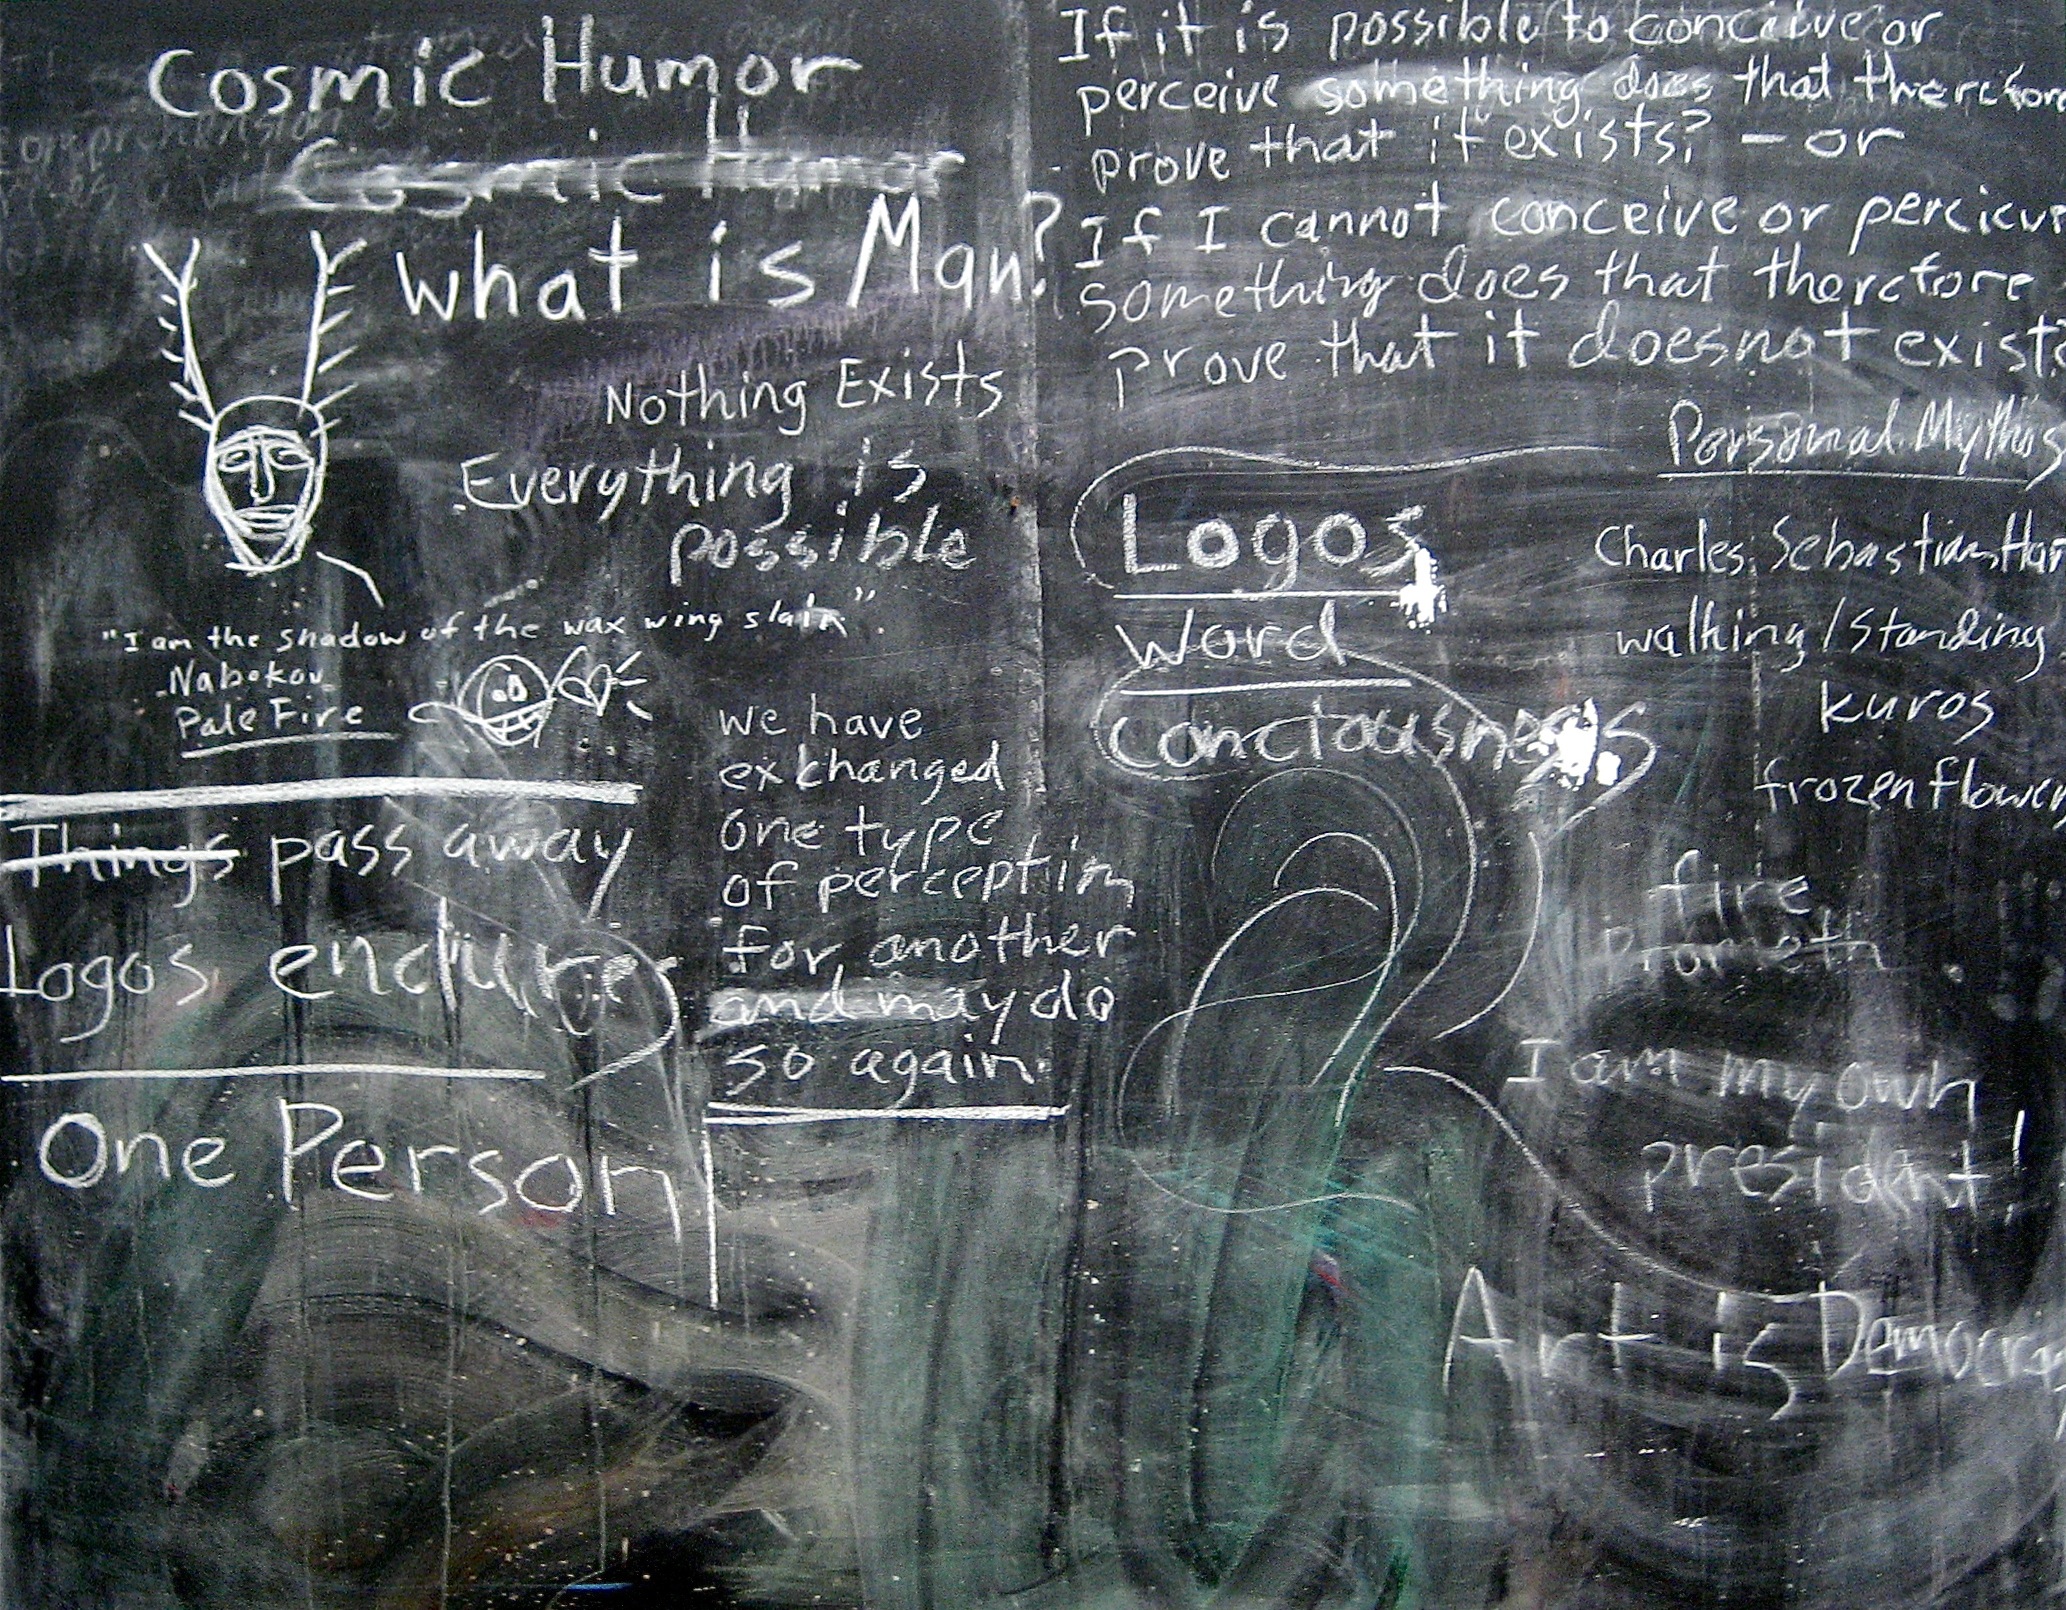 Cosmic Humor
Cosmic Humor
What is Man?
Nothing Exists
Everything is
possible
"I am the shadow of the wax wing slain".
Nabokov
Pale Fire
Things pass away
Logos endures
One Person
we have
exchanged
one type
of perception
for another
and may do
so again.
If it is possible to conceive or
perceive something does that therefore
prove that it exists? - or
If I cannot conceive or percieve
something does that therefore
prove that it does not exist?
Personal Mythos
Logos
Word
Conciousness
Charles Sebastian Har
walking/standing
kuros
frozen flower
fire
Prometh
I am my own
president!
Art is Democracy